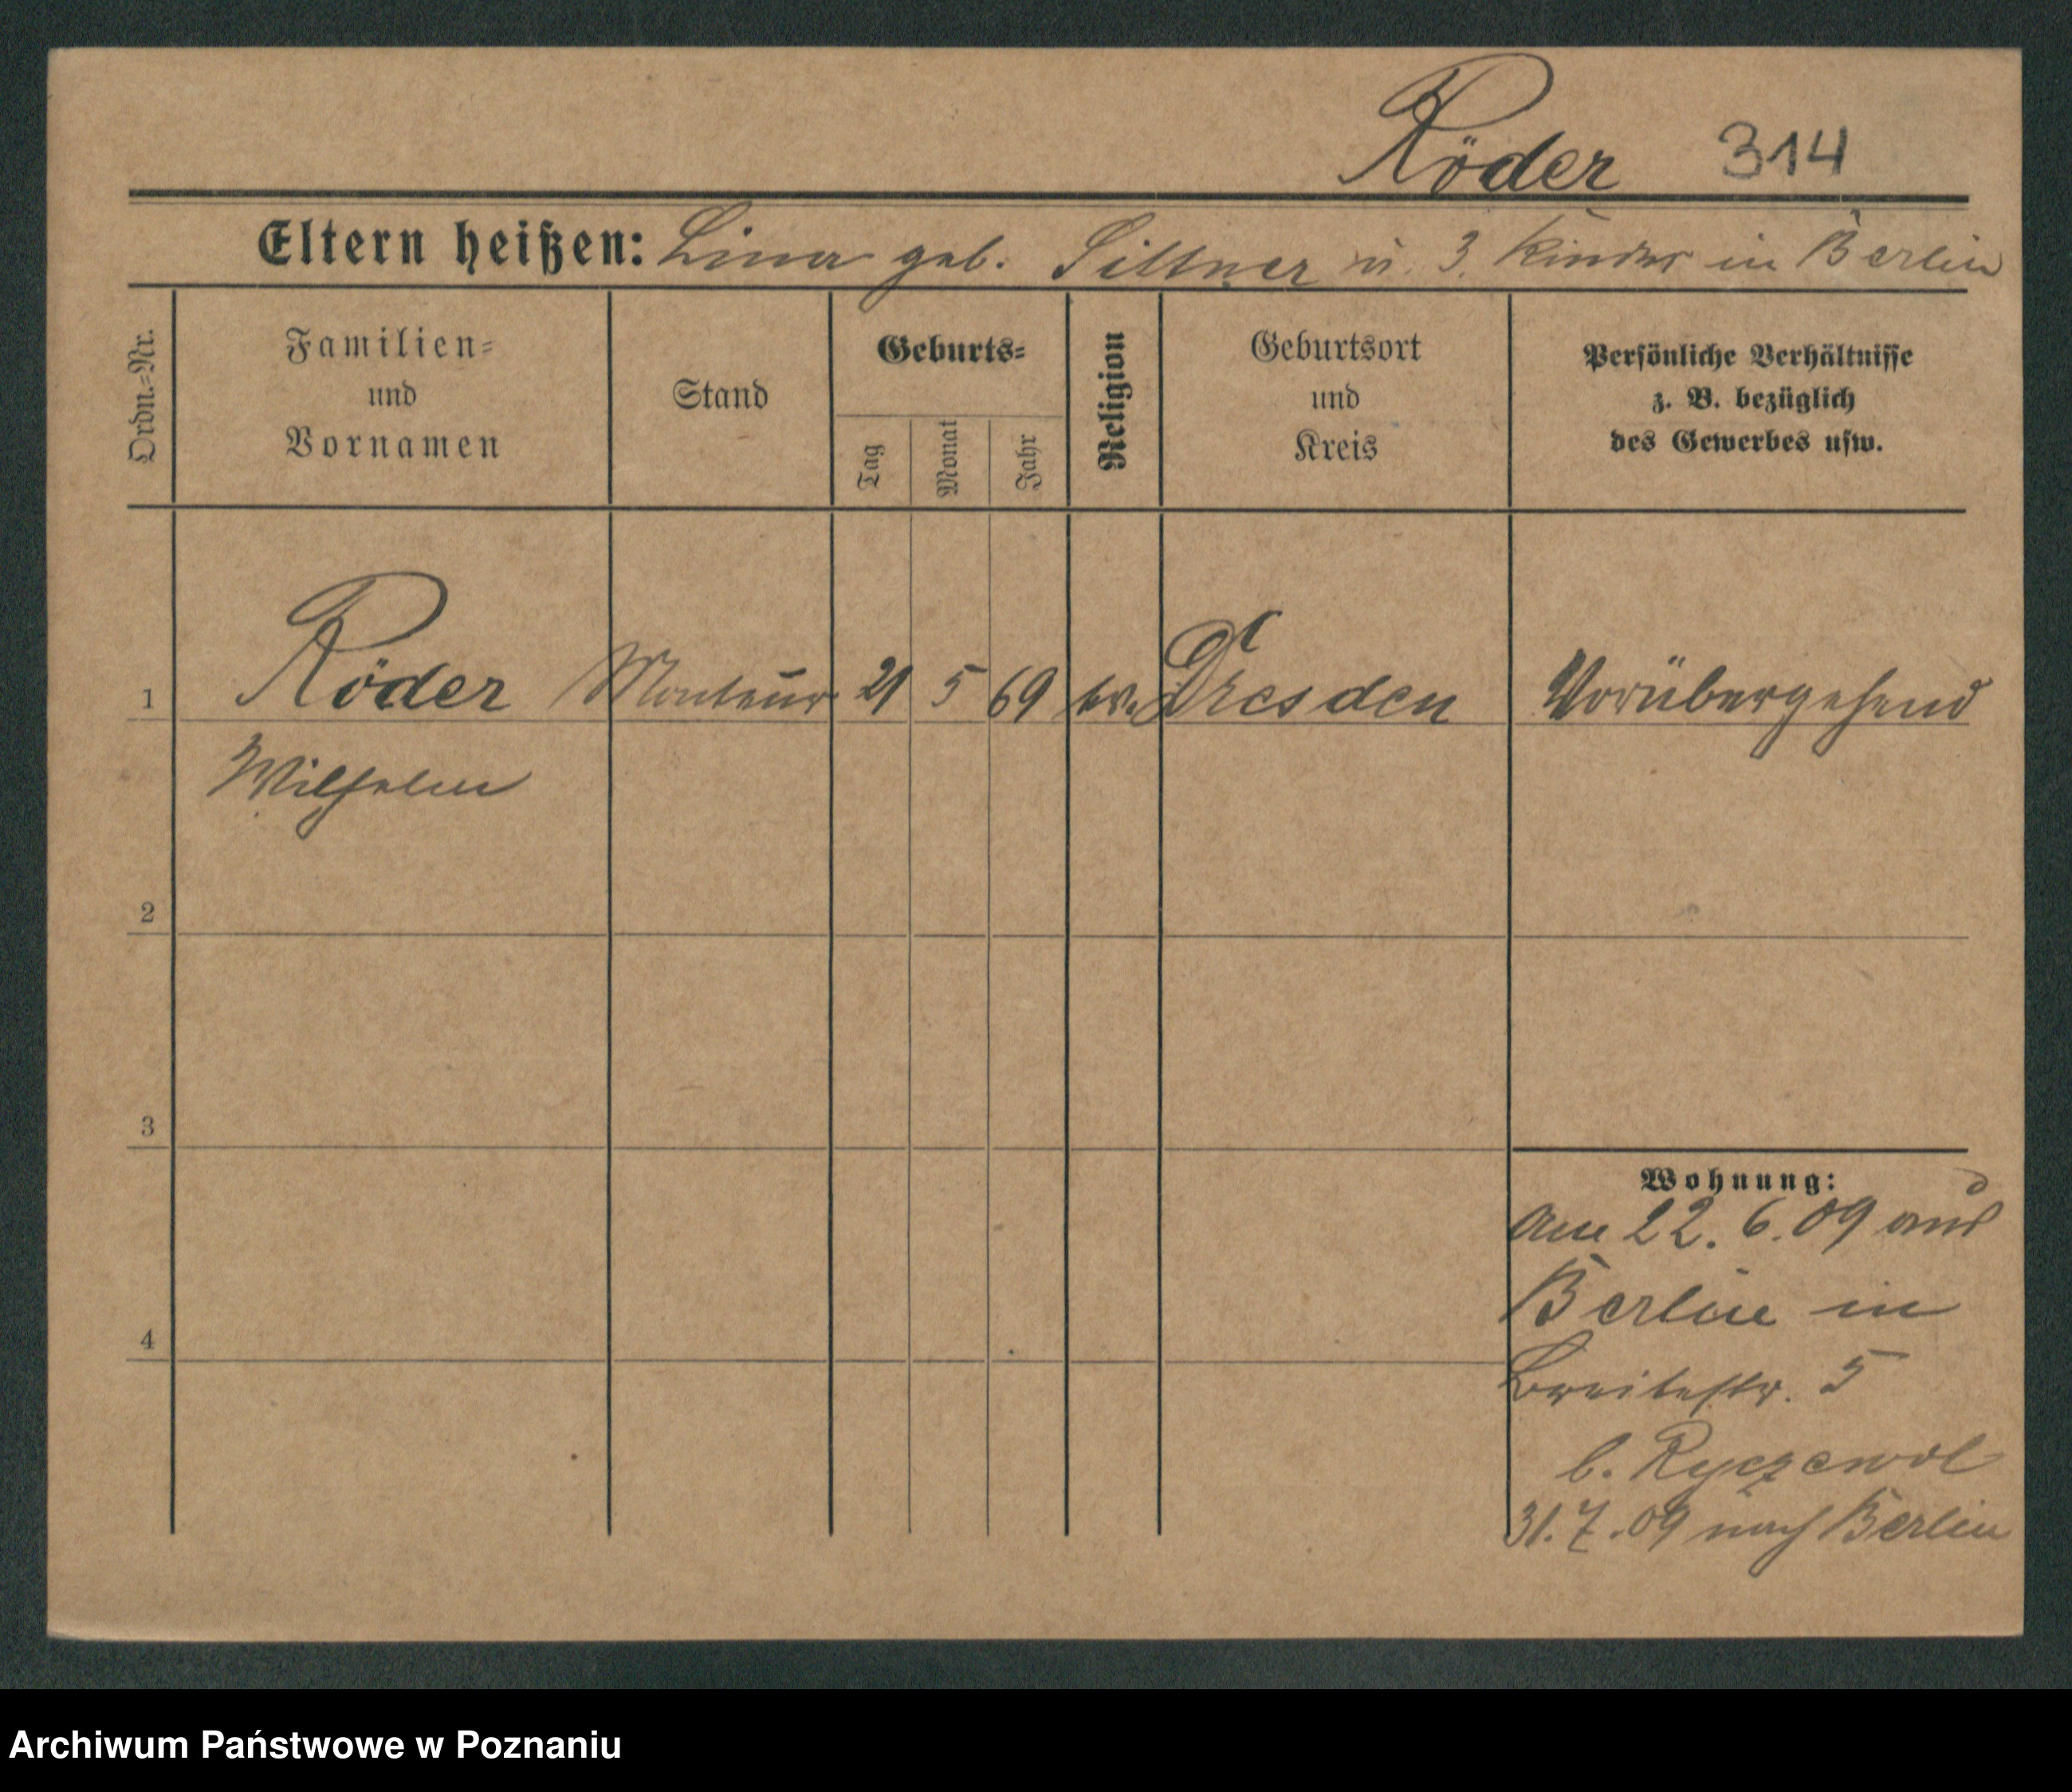 Röder 314
Eltern heißen: Lina geb. Sittner u. 3. Kinder in Berlin
Ordn.=Nr.
Familien=
und
Vornamen
Stand
Geburts=
Tag
Monat
Jahr
Religion
Geburtsort
und
Kreis
Persönliche Verhältnisse
z. B. bezüglich
des Gewerbes usw.
1 Röder Monteur 21 5 69 ev. Dresden Vorübergehend
Wilhelm
2
3
4
Wohnung:
am 22. 6. 09 aus
Berlin in
Breitestr. 5
b. Ryczewol
31.7.09 nach Berlin
Archiwum Państwowe w Poznaniu